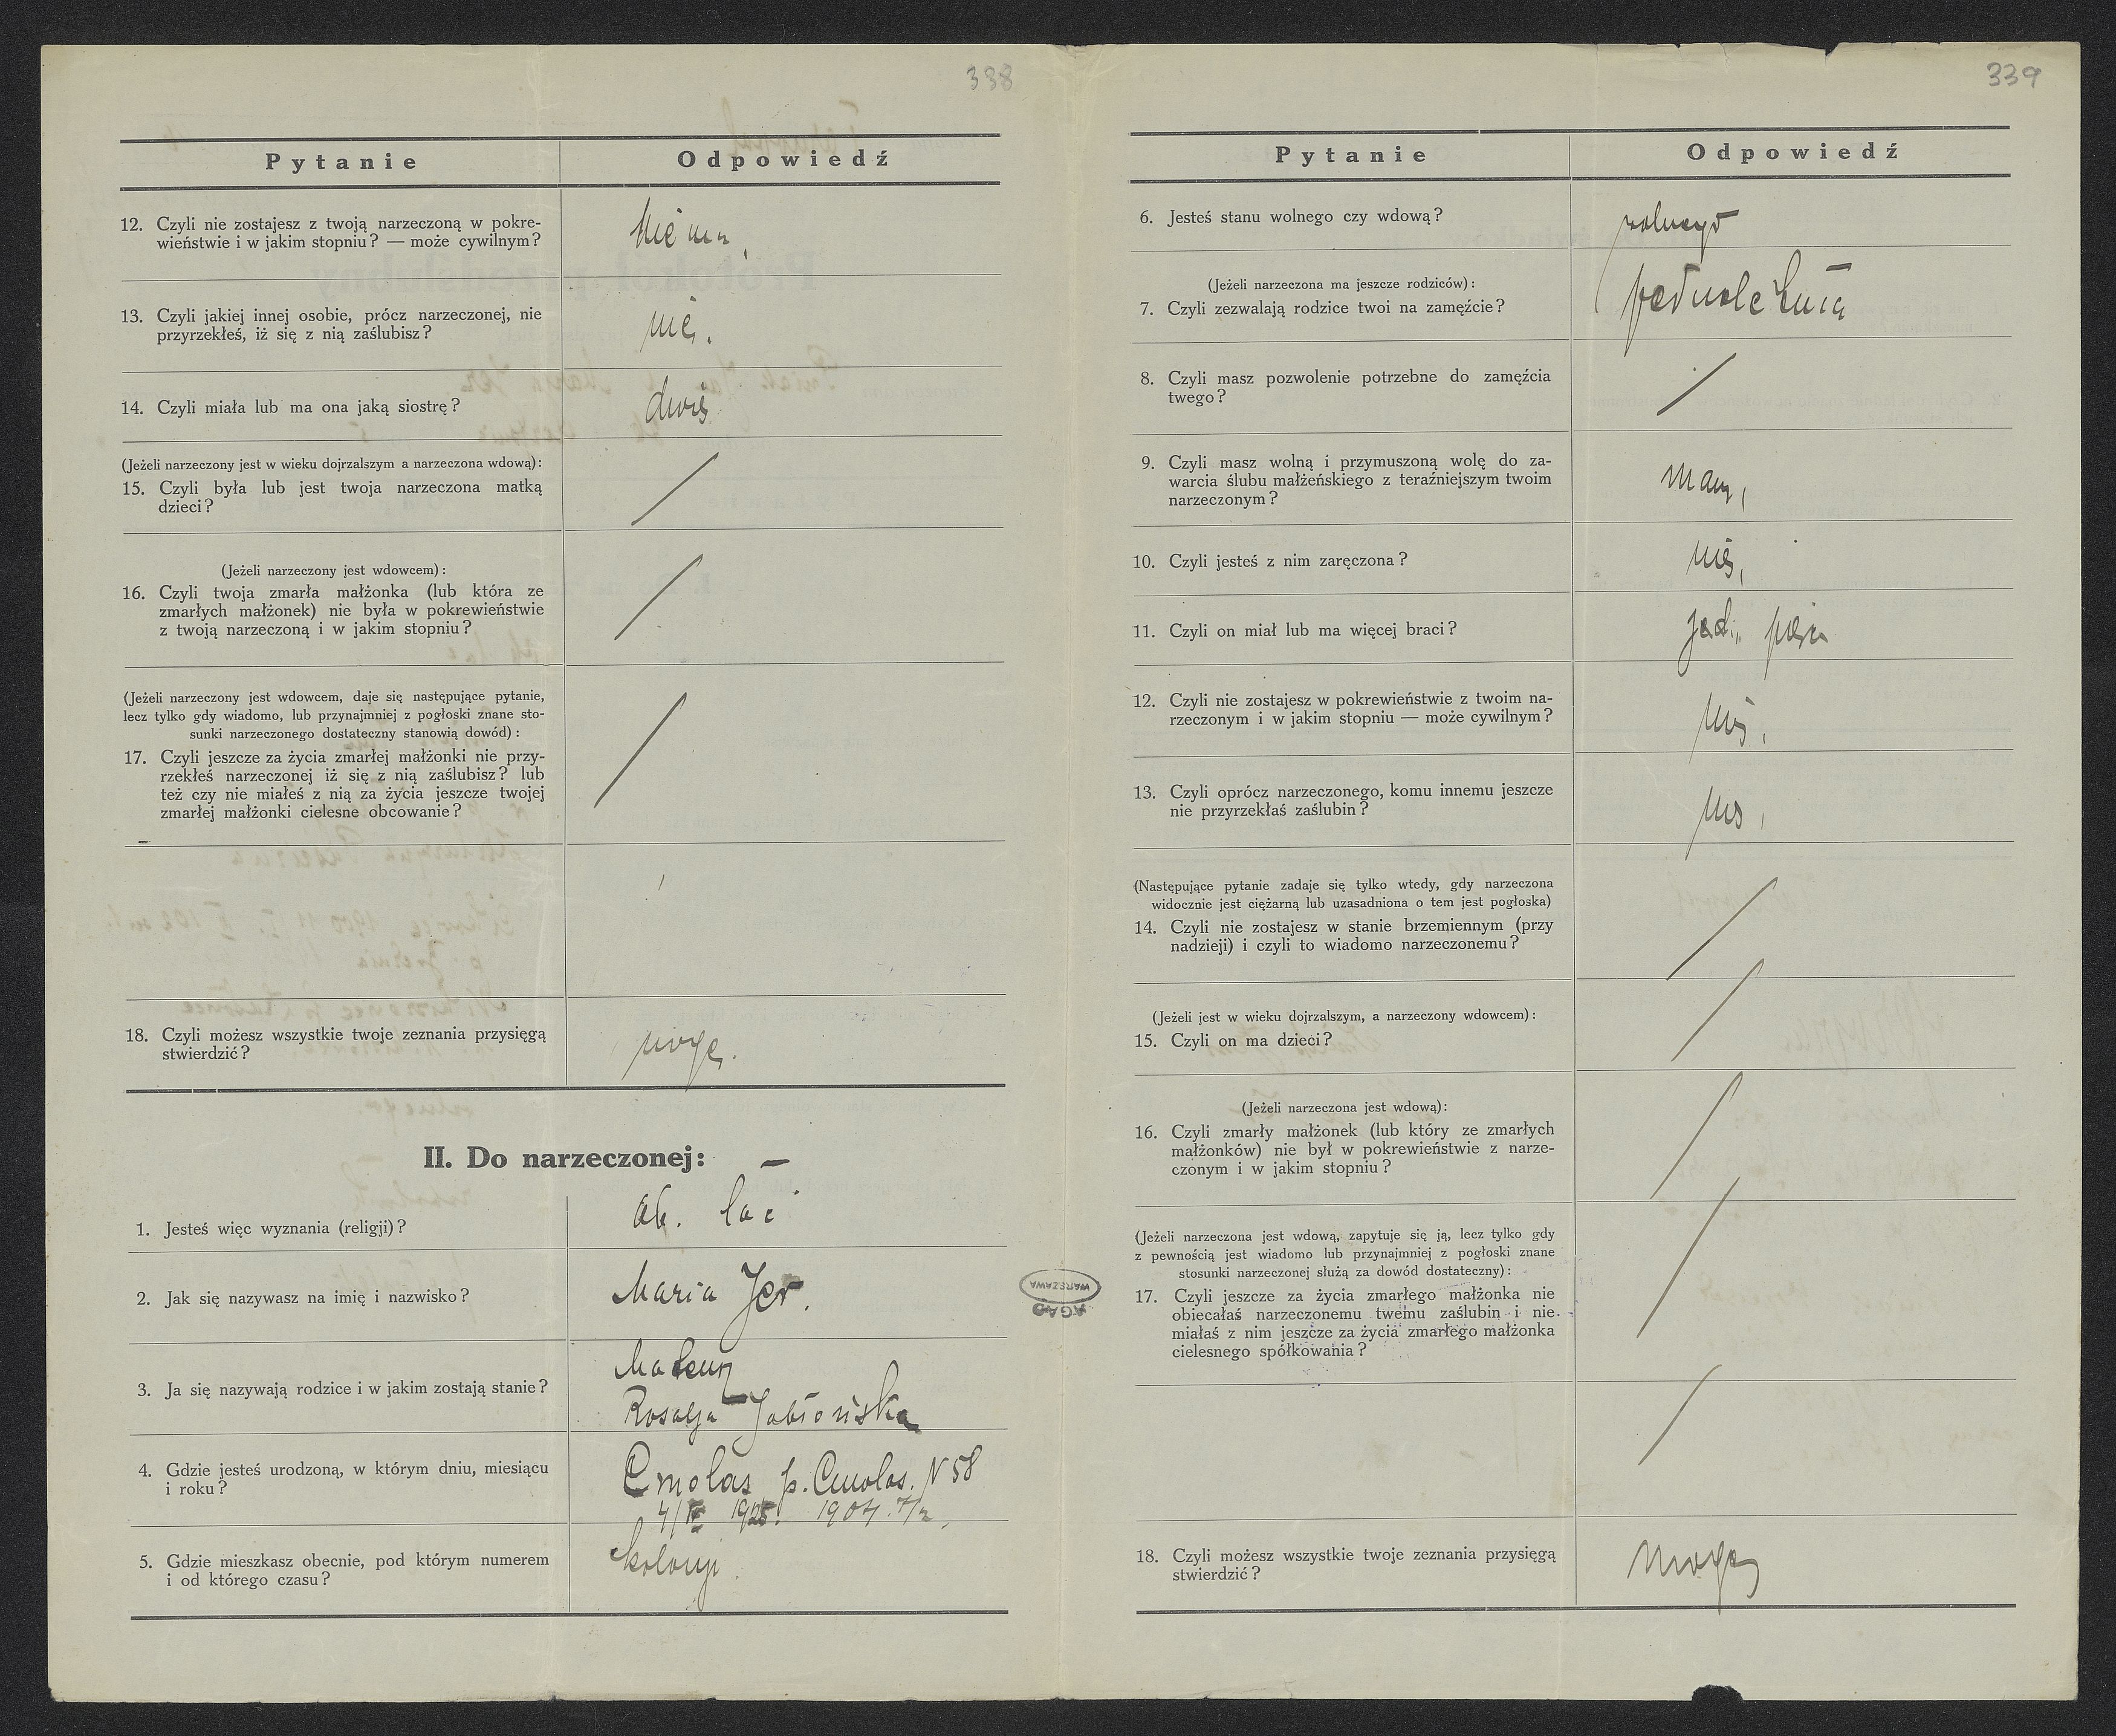 338
Pytanie Odpowiedź
12. Czyli nie zostajesz z twoją narzeczoną w pokre-
wieństwie i w jakim stopniu? — może cywilnym?
Nie
13. Czyli jakiej innej osobie, prócz narzeczonej, nie
przyrzekłeś, iż się z nią zaślubisz?
nie.
14. Czyli miała lub ma ona jaką siostrę?
dwie
(Jeżeli narzeczony jest w wieku dojrzalszym a narzeczona wdową):
15. Czyli była lub jest twoja narzeczona matką
dzieci?
/
(Jeżeli narzeczony jest wdowcem):
16. Czyli twoja zmarła małżonka (lub która ze
zmarłych małżonek) nie była w pokrewieństwie
z twoją narzeczoną i w jakim stopniu?
/
(Jeżeli narzeczony jest wdowcem, daje się następujące pytanie,
lecz tylko gdy wiadomo, lub przynajmniej z pogłoski znane sto-
sunki narzeczonego dostateczny stanowią dowód):
17. Czyli jeszcze za życia zmarłej małżonki nie przy-
rzekłeś narzeczonej iż się z nią zaślubisz? lub
też czy nie miałeś z nią za życia jeszcze twojej
zmarłej małżonki cielesne obcowanie?
/
18. Czyli możesz wszystkie twoje zeznania przysięgą
stwierdzić?
mogę.
II. Do narzeczonej:
1. Jesteś więc wyznania (religji)?
ob. łać
2. Jak się nazywasz na imię i nazwisko?
Maria Jer.
3. Ja się nazywają rodzice i w jakim zostają stanie?
Rosalja Jabłońska
4. Gdzie jesteś urodzoną, w którym dniu, miesiącu
i roku?
Cmolas p. Cmolas. N 58
1904.
5. Gdzie mieszkasz obecnie, pod którym numerem
i od którego czasu?
AGAD
WARSZAWA
339
Pytanie Odpowiedź
6. Jesteś stanu wolnego czy wdową?
wolnego
(Jeżeli narzeczona ma jeszcze rodziców):
7. Czyli zezwalają rodzice twoi na zamęźcie?
8. Czyli masz pozwolenie potrzebne do zamęźcia
twego?
/
9. Czyli masz wolną i przymuszoną wolę do za-
warcia ślubu małżeńskiego z teraźniejszym twoim
narzeczonym?
mam,
10. Czyli jesteś z nim zaręczona?
nie,
11. Czyli on miał lub ma więcej braci?
12. Czyli nie zostajesz w pokrewieństwie z twoim na-
rzeczonym i w jakim stopniu — może cywilnym?
nie,
13. Czyli oprócz narzeczonego, komu innemu jeszcze
nie przyrzekłaś zaślubin?
nie,
(Następujące pytanie zadaje się tylko wtedy, gdy narzeczona
widocznie jest ciężarną lub uzasadniona o tem jest pogłoska)
14. Czyli nie zostajesz w stanie brzemiennym (przy
nadzieji) i czyli to wiadomo narzeczonemu?
/
(Jeżeli jest w wieku dojrzalszym, a narzeczony wdowcem):
15. Czyli on ma dzieci?
/
(Jeżeli narzeczona jest wdową):
16. Czyli zmarły małżonek (lub który ze zmarłych
małżonków) nie był w pokrewieństwie z narze-
czonym i w jakim stopniu?
/
(Jeżeli narzeczona jest wdową, zapytuje się ją, lecz tylko gdy
z pewnością jest wiadomo lub przynajmniej z pogłoski znane
stosunki narzeczonej służą za dowód dostateczny):
17. Czyli jeszcze za życia zmarłego małżonka nie
obiecałaś narzeczonemu twemu zaślubin i nie
miałaś z nim jeszcze za życia zmarłego małżonka
cielesnego spółkowania?
/
/
18. Czyli możesz wszystkie twoje zeznania przysięgą
stwierdzić?
mogę